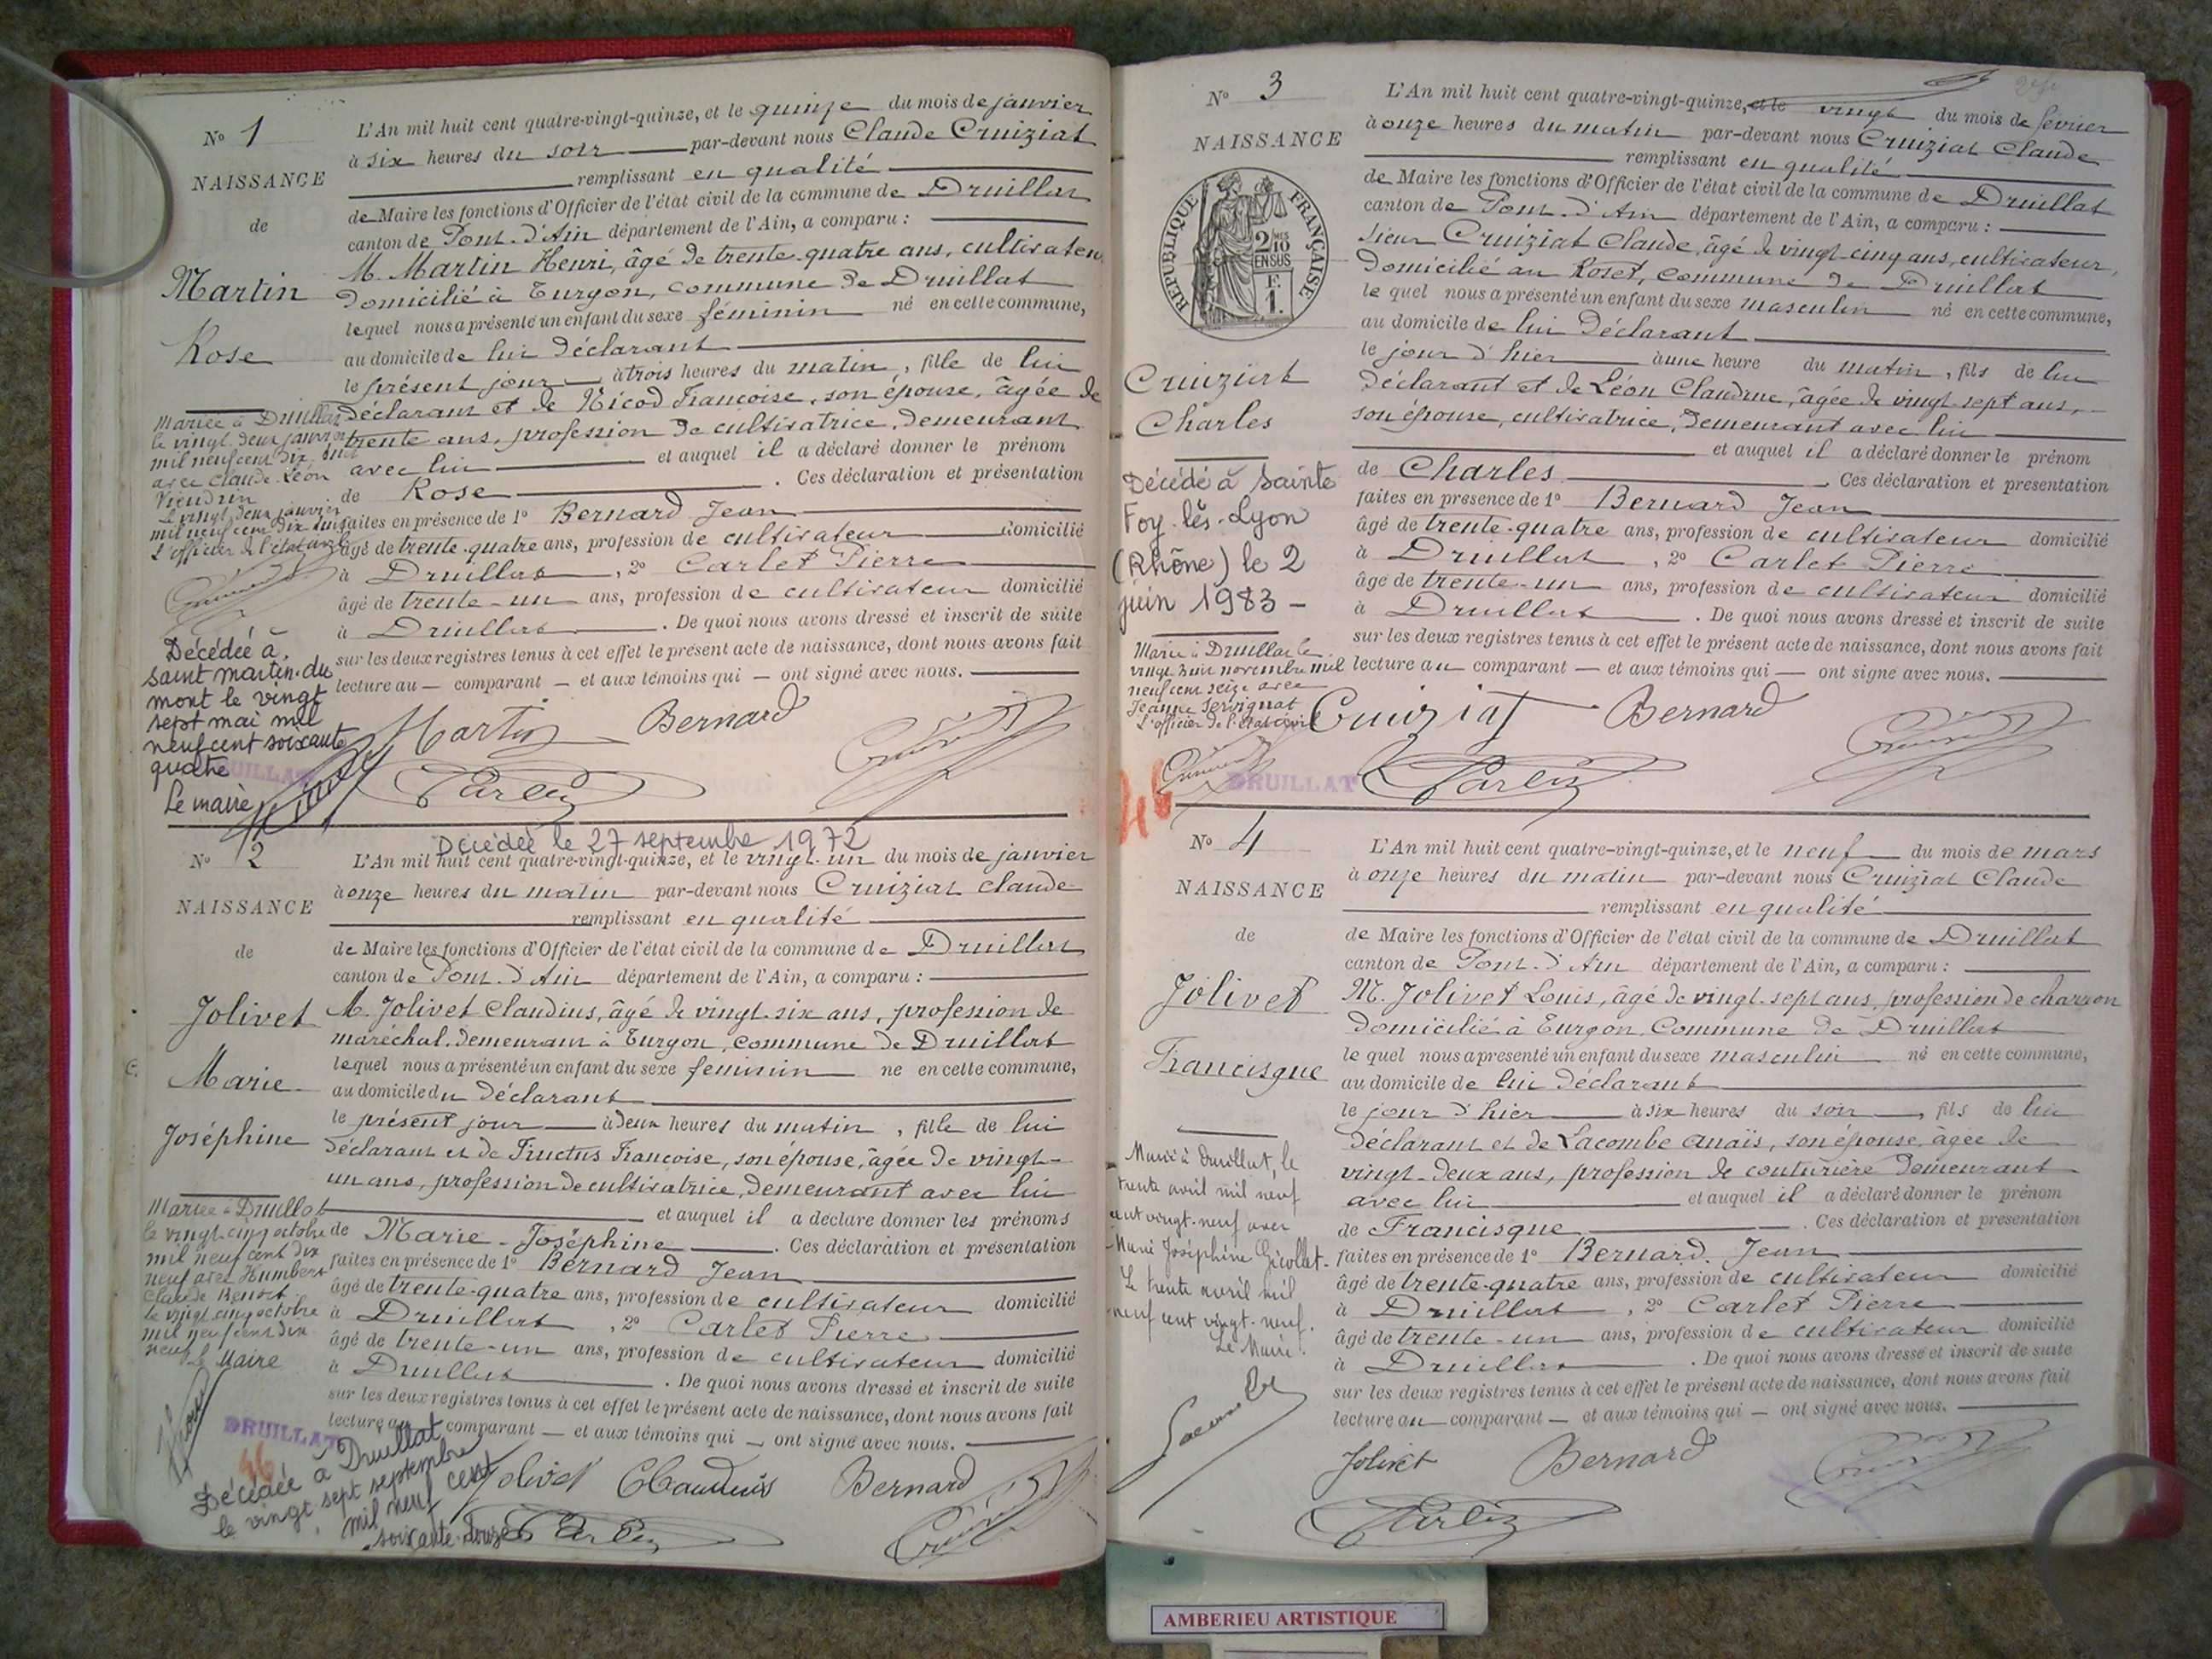 N° 1
NAISSANCE
de
Martin
Rose
L'An mil huit cent quatre-vingt-quinze, et le quinze du mois de janvier
à six heures du soir par-devant nous Claude Cruiziat
remplissant en qualité
de Maire les fonctions d'Officier de l'état civil de la commune de Druillat
canton de Pont-d'Ain département de l'Ain, a comparu :
M. Martin Henri, âgé de trente-quatre ans, cultivateur
domicilié à Turgon, commune de Druillat
lequel nous a présenté un enfant du sexe féminin né en cette commune,
au domicile de lui déclarant
le présent jour à trois heures du matin, fille de lui
déclarant et de Nicod Françoise, son épouse, âgée de
trente ans, profession de cultivatrice, demeurant
avec lui et auquel il a déclaré donner le prénom
de Rose. Ces déclaration et présentation
faites en présence de 1° Bernard Jean
âgé de trente-quatre ans, profession de cultivateur domicilié
à Druillat, 2° Carlet Pierre
âgé de trente-un ans, profession de cultivateur domicilié
à Druillat. De quoi nous avons dressé et inscrit de suite
sur les deux registres tenus à cet effet le présent acte de naissance, dont nous avons fait
lecture au comparant et aux témoins qui ont signé avec nous.
Mariée à Druillat
le vingt deux janvier
mil neuf cent dix huit
avec Claude Léon
Vieudrin
Le vingt deux janvier
mil neuf cent dix huit
L'officier de l'état civil
Décédée à
Saint Martin-du
mont le vingt
sept mai mil
neuf cent soixante
quatre
Le maire
Martin Bernard
Carlet
DRUILLAT
Décédée le 27 septembre 1972
N° 2
NAISSANCE
de
Jolivet
Marie
Joséphine
L'An mil huit cent quatre-vingt-quinze, et le vingt-un du mois de janvier
à onze heures du matin par-devant nous Cruiziat Claude
remplissant en qualité
de Maire les fonctions d'Officier de l'état civil de la commune de Druillat
canton de Pont-d'Ain département de l'Ain, a comparu :
M. Jolivet Claudius, âgé de vingt-six ans, profession de
maréchal, demeurant à Turgon, commune de Druillat
lequel nous a présenté un enfant du sexe féminin né en cette commune,
au domicile du déclarant
le présent jour à deux heures du matin, fille de lui
déclarant et de Fructus Françoise, son épouse, âgée de vingt-
un ans, profession de cultivatrice, demeurant avec lui
et auquel il a déclaré donner les prénoms
de Marie-Joséphine. Ces déclaration et présentation
faites en présence de 1° Bernard Jean
âgé de trente-quatre ans, profession de cultivateur domicilié
à Druillat, 2° Carlet Pierre
âgé de trente-un ans, profession de cultivateur domicilié
à Druillat. De quoi nous avons dressé et inscrit de suite
sur les deux registres tenus à cet effet le présent acte de naissance, dont nous avons fait
lecture au comparant et aux témoins qui ont signé avec nous.
Mariée à Druillat
le vingt-cinq octobre
mil neuf cent dix
neuf avec Humbert
Claude Benoit
le vingt cinq octobre
mil neuf cent dix
neuf Le Maire
DRUILLAT
46
Décédée à Druillat
le vingt-sept septembre
mil neuf cent
soixante-douze
Jolivet Claudius Bernard
Carlet
N° 3
NAISSANCE
REPUBLIQUE FRANÇAISE
2/10 EN SUS
F. 1.
Cruiziat
Charles
L'An mil huit cent quatre-vingt-quinze, et le vingt du mois de février
à onze heures du matin par-devant nous Cruiziat Claude
remplissant en qualité
de Maire les fonctions d'Officier de l'état civil de la commune de Druillat
canton de Pont-d'Ain département de l'Ain, a comparu :
Sieur Cruiziat Claude, âgé de vingt-cinq ans, cultivateur,
domicilié au Roset, commune de Druillat
le quel nous a présenté un enfant du sexe masculin né en cette commune,
au domicile de lui déclarant
le jour d'hier à une heure du matin, fils de lui
déclarant et de Léon Claudine, âgée de vingt-sept ans,
son épouse, cultivatrice, demeurant avec lui
et auquel il a déclaré donner le prénom
de Charles. Ces déclaration et présentation
faites en présence de 1° Bernard Jean
âgé de trente-quatre ans, profession de cultivateur domicilié
à Druillat, 2° Carlet Pierre
âgé de trente-un ans, profession de cultivateur domicilié
à Druillat. De quoi nous avons dressé et inscrit de suite
sur les deux registres tenus à cet effet le présent acte de naissance, dont nous avons fait
lecture au comparant et aux témoins qui ont signé avec nous.
Décédé à Sainte
Foy-lès-Lyon
(Rhône) le 2
juin 1983 -
Marié à Druillat le
vingt huit novembre mil
neuf cent seize avec
Jeanne Servignat
L'officier de l'état civil
Cruiziat Bernard
Carlet
46
DRUILLAT
N° 4
NAISSANCE
de
Jolivet
Francisque
L'An mil huit cent quatre-vingt-quinze, et le neuf du mois de mars
à onze heures du matin par-devant nous Cruiziat Claude
remplissant en qualité
de Maire les fonctions d'Officier de l'état civil de la commune de Druillat
canton de Pont-d'Ain département de l'Ain, a comparu :
M. Jolivet Louis, âgé de vingt-sept ans, profession de charron
domicilié à Turgon, Commune de Druillat
le quel nous a présenté un enfant du sexe masculin né en cette commune,
au domicile de lui déclarant
le jour d'hier à six heures du soir, fils de lui
déclarant et de Lacombe Anaïs, son épouse, âgée de
vingt-deux ans, profession de couturière demeurant
avec lui et auquel il a déclaré donner le prénom
de Francisque. Ces déclaration et présentation
faites en présence de 1° Bernard Jean
âgé de trente-quatre ans, profession de cultivateur domicilié
à Druillat, 2° Carlet Pierre
âgé de trente-un ans, profession de cultivateur domicilié
à Druillat. De quoi nous avons dressé et inscrit de suite
sur les deux registres tenus à cet effet le présent acte de naissance, dont nous avons fait
lecture au comparant et aux témoins qui ont signé avec nous.
Marié à Druillat, le
trente avril mil neuf
cent vingt-neuf avec
Marie Joséphine Gicollet.
Le trente avril mil
neuf cent vingt-neuf.
Le Maire.
Jolivet Bernard
Carlet
AMBERIEU ARTISTIQUE